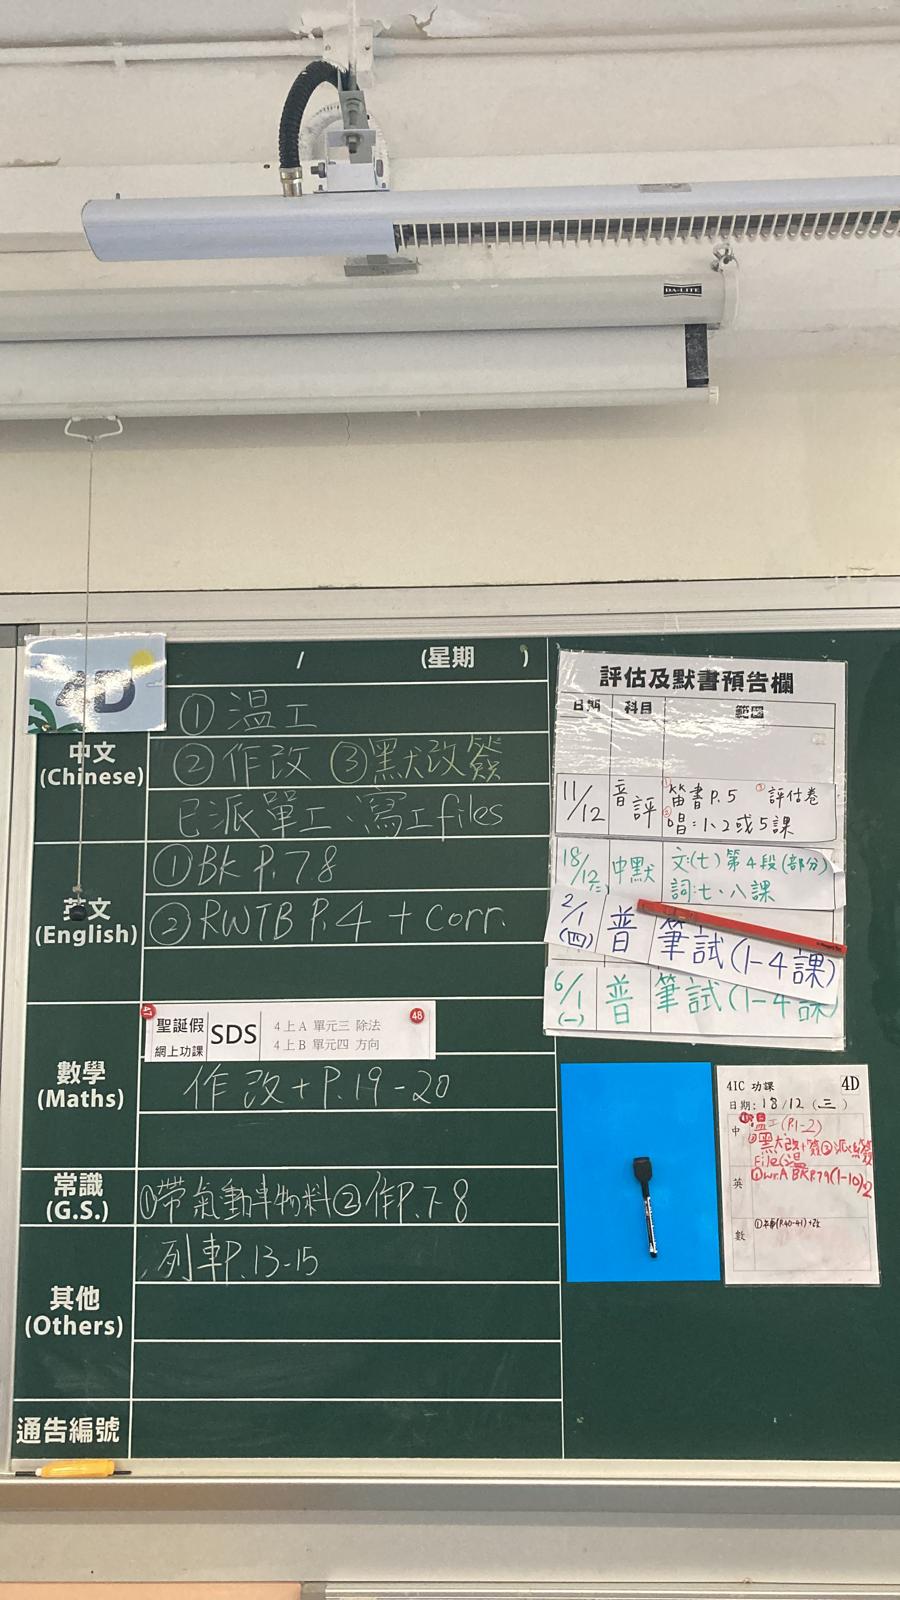 DA-LITE
4D
/ (星期 )
中文
(Chinese)
① 溫工
② 作改 ③默改簽
已派單工、寫工files
英文
(English)
①BK P.78
②RWTB P.4 + corr.
數學
(Maths)
47 聖誕假 網上功課 SDS 48
4上A 單元三 除法
4上B 單元四 方向
作改+P.19-20
常識
(G.S.)
①帶氣動車物料②作P.7-8
其他
(Others)
列車P.13-15
通告編號
評估及默書預告欄
日期 科目 範圍
11/12 音評 ①笛書P.5 ③評估卷
②唱:1、2或5課
18/12(三) 中默 文:(七)第4段(部分)
詞:七、八課
2/1(四) 普 筆試(1-4課)
6/1(一) 普 筆試(1-4課)
4IC 功課 4D
日期: 18/12 (三)
中 ①溫工(P.1-2)
②默改+簽③派
File
英 ①wr.A BKP.79(1-10)
數